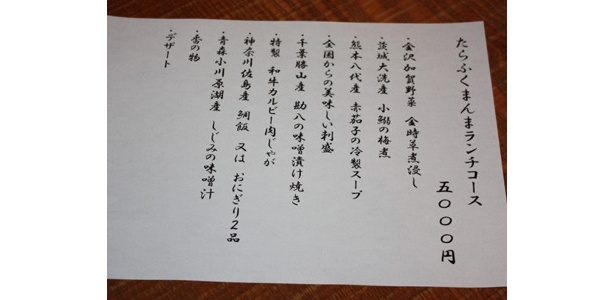 たらふくまんまランチコース
五〇〇〇円
・金沢加賀野菜 金時草煮浸し
・茨城大洗産 小鰯の梅煮
・熊本八代産 赤茄子の冷製スープ
・全国からの美味しい刺盛
・千葉勝山産 勘八の味噌漬け焼き
・特製 和牛カルビー肉じゃが
・神奈川佐島産 鯛飯 又は おにぎり2品
・青森小川原湖産 しじみの味噌汁
・香の物
・デザート